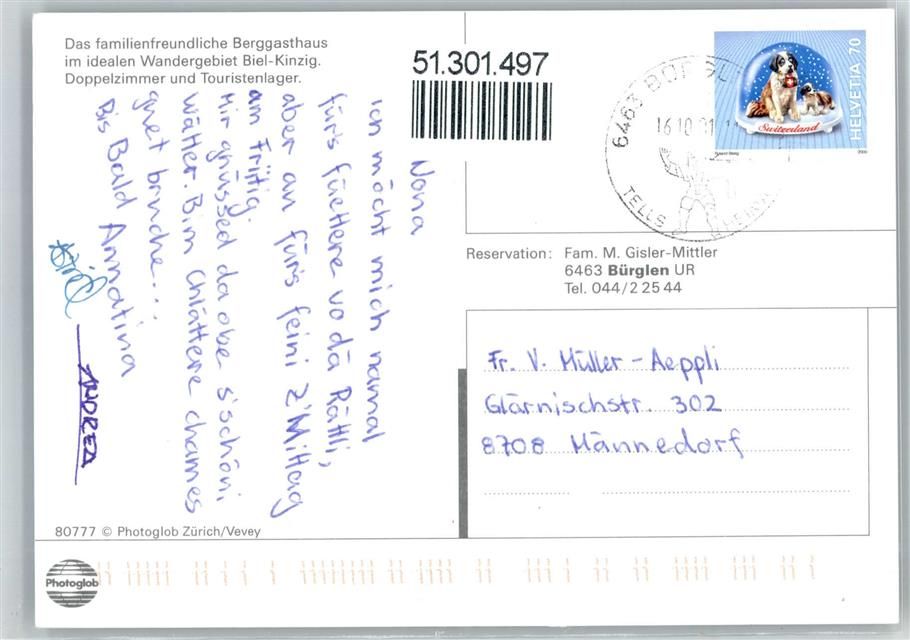 Das familienfreundliche Berggasthaus
im idealen Wandergebiet Biel-Kinzig.
Doppelzimmer und Touristenlager.
51.301.497
Nona
Ich möcht mich namal
fürs füettere vo dä Rättli,
aber au fürs feini z'Mittag
am Friitig.
Mir grüssed da obe s'schöni
Wätter. Bim Chlättere chames
guet bruuche...
Bis Bald Annatina
ANDREA
80777 © Photoglob Zürich/Vevey
Photoglob
HELVETIA 70
Switzerland
6463 BÜRGLEN
16.10.01
TELLS
Reservation: Fam. M. Gisler-Mittler
6463 Bürglen UR
Tel. 044/2 25 44
Fr. V. Müller-Aeppli
Glärnischstr. 302
8708 Männedorf